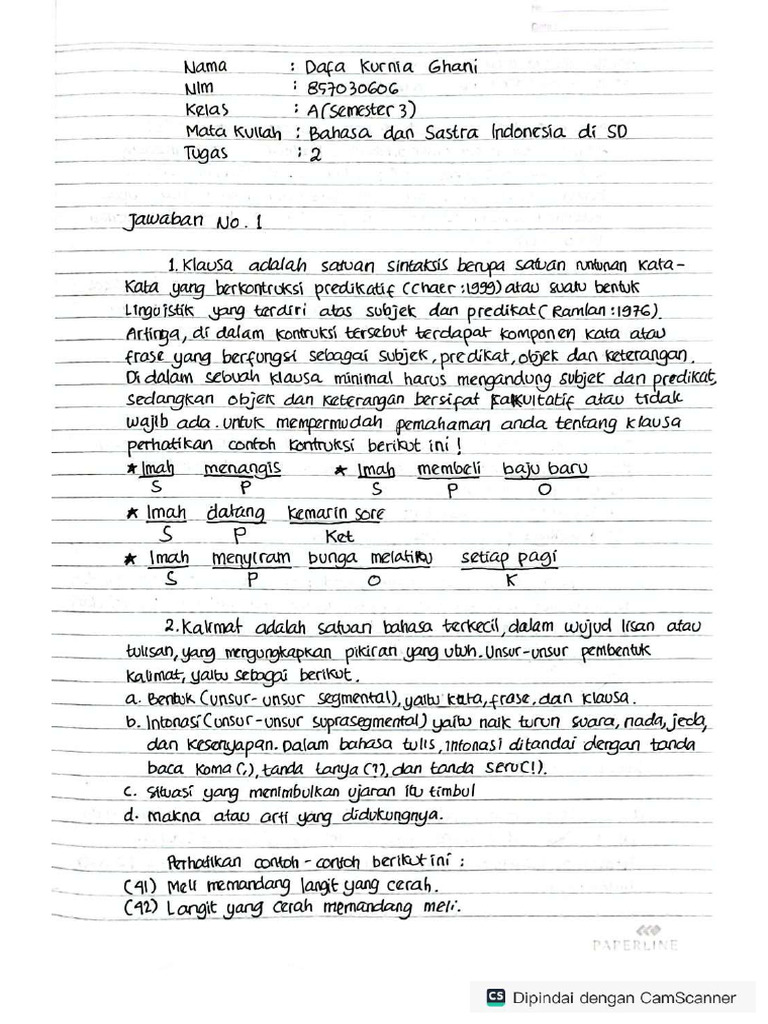 Nama : Dafa Kurnia Ghani
Nim : 857030606
Kelas : A (Semester 3)
Mata Kuliah : Bahasa dan Sastra Indonesia di SD
Tugas : 2
Jawaban No. 1
1. Klausa adalah satuan sintaksis berupa satuan runtunan kata-
kata yang berkontruksi predikatif (Chaer : 1999) atau suatu bentuk
Linguistik yang terdiri atas subjek dan predikat (Ramlan : 1976).
Artinga, di dalam kontruksi tersebut terdapat komponen kata atau
frase yang berfungsi sebagai subjek, predikat, objek dan keterangan.
Di dalam sebuah klausa minimal harus mengandung subjek dan predikat,
sedangkan objek dan keterangan bersifat fakultatif atau tidak
wajib ada. untuk mempermudah pemahaman anda tentang klausa
perhatikan contoh kontruksi berikut ini !
★ Imah menangis ★ Imah membeli baju baru
S P S P O
★ Imah datang kemarin sore
S P Ket
★ Imah menyiram bunga melatiku setiap pagi
S P O K
2. Kalimat adalah satuan bahasa terkecil, dalam wujud lisan atau
tulisan, yang mengungkapkan pikiran yang utuh. Unsur-unsur pembentuk
kalimat, yaitu sebagai berikut.
a. Bentuk (unsur-unsur segmental), yaitu kata, frase, dan klausa.
b. Intonasi (unsur-unsur suprasegmental) yaitu naik turun suara, nada, jeda,
dan kesenyapan. Dalam bahasa tulis, intonasi ditandai dengan tanda
baca koma (,), tanda tanya (?), dan tanda seru (!).
c. Situasi yang menimbulkan ujaran itu timbul
d. Makna atau arti yang didukungnya.
Perhatikan contoh-contoh berikut ini :
(41) Meli memandang langit yang cerah.
(42) Langit yang cerah memandang meli.
PAPERLINE
CS Dipindai dengan CamScanner